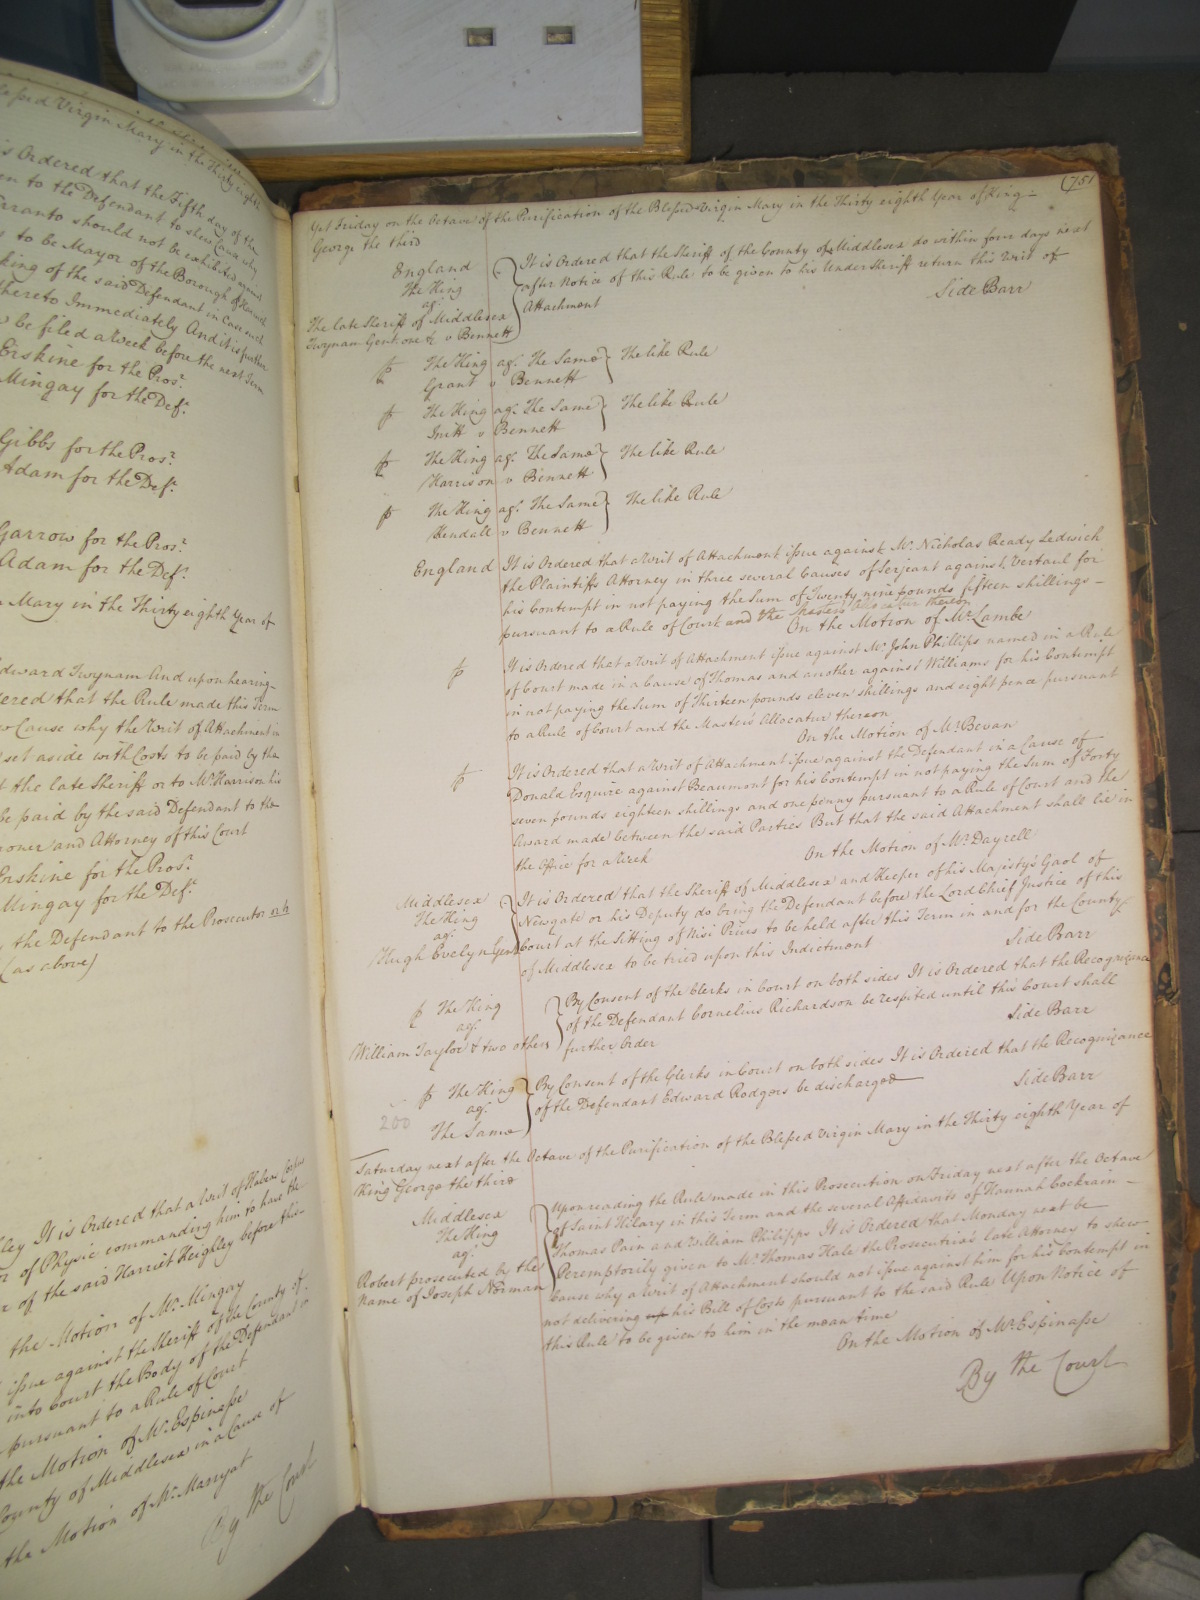 Virgin Mary in the Thirty eighth
is Ordered that the Fifth day of the
en to the Defendant to shew Cause why
rranto should not be exhibited against
to be Mayor of the Borough of Harwich
king of the said Defendant in Case such
thereto Immediately And it is further
be filed a Week before the next Term
Erskine for the Pros:r
Mingay for the Def:t
Gibbs for the Pros:r
Adam for the Def:t
Garrow for the Pros:r
Adam for the Def:t
Mary in the Thirty eighth Year of
Edward Twynam And upon hearing
ered that the Rule made this Term
Cause why the Writ of Attachment in
set aside with Costs to be paid by the
the late Sheriff or to Mr. Harrison his
be paid by the said Defendant to the
oner and Attorney of this Court
Erskine for the Pros:r
Mingay for the Def:t
the Defendant to the Prosecutor or h
(as above)
ley It is Ordered that a Writ of Habeas Corpus
r of Physic commanding him to have the
r of the said Harriet Heighley before this
the Motion of Mr. Mingay
issue against the Sheriff of the County of
into Court the Body of the Defendant in
pursuant to a Rule of Court
the Motion of Mr. Espinasse
County of Middlesex in a Cause of
the Motion of Mr. Marryat
By the Court
(751
Yet Friday on the Octave of the Purification of the Blessed Virgin Mary in the Thirty eighth Year of King
George the third
England
The King
ag.t
The late Sheriff of Middlesex
Twynam Gent. one &c v Bennett
It is Ordered that the Sheriff of the County of Middlesex do within four days next
after Notice of this Rule to be given to his Undersheriff return this Writ of
Attachment
Side Barr
The King ag.t The Same The like Rule
Grant v Bennett
The King ag.t The Same The like Rule
v Bennett
The King ag.t The Same The like Rule
Harrison v Bennett
The King ag.t The Same The like Rule
Kendall v Bennett
England It is Ordered that a Writ of Attachment issue against Mr. Nicholas Ready Ledwich
the Plaintiffs Attorney in three several Causes of Serjeant against Vertaul for
his Contempt in not paying the Sum of Twenty nine pounds fifteen shillings
pursuant to a Rule of Court and the Masters Allocatur thereon
On the Motion of Mr. Lambe
It is Ordered that a Writ of Attachment issue against Mr. John Phillips named in a Rule
of Court made in a Cause of Thomas and another against Williams for his Contempt
in not paying the Sum of Thirteen pounds eleven shillings and eight pence pursuant
to a Rule of Court and the Masters Allocatur thereon
On the Motion of Mr. Bevan
It is Ordered that a Writ of Attachment issue against the Defendant in a Cause of
Donald Esquire against Beaumont for his Contempt in not paying the Sum of Forty
seven pounds eighteen shillings and one penny pursuant to a Rule of Court and the
Award made between the said Parties But that the said Attachment shall lie in
the Office for a Week
On the Motion of Mr. Dayrell
Middlesex
The King
ag.t
Hugh Evelyn Gent
It is Ordered that the Sheriff of Middlesex and Keeper of his Majesty's Gaol of
Newgate or his Deputy do bring the Defendant before the Lord Chief Justice of this
Court at the Sitting of Nisi Prius to be held after this Term in and for the County
of Middlesex to be tried upon this Indictment
Side Barr
The King
ag.t
William Taylor & two others
By Consent of the Clerks in Court on both sides It is Ordered that the Recognizance
of the Defendant Cornelius Richardson be respited until this Court shall
further Order
Side Barr
The King
ag.t
The Same
200
By Consent of the Clerks in Court on both sides It is Ordered that the Recognizance
of the Defendant Edward Rodgers be discharged
Side Barr
Saturday next after the Octave of the Purification of the Blessed Virgin Mary in the Thirty eighth Year of
King George the third
Middlesex
The King
ag.t
Robert prosecuted by the
Name of Joseph Norman
Upon reading the Rule made in this Prosecution on Friday next after the Octave
of Saint Hilary in this Term and the several Affidavits of Hannah Cockrain
Thomas Pain and William Philipps It is Ordered that Monday next be
Peremptorily given to Mr. Thomas Hale the Prosecutrix's late Attorney to shew
Cause why a Writ of Attachment should not issue against him for his Contempt in
not delivering up his Bill of Costs pursuant to the said Rule Upon Notice of
this Rule to be given to him in the mean time
On the Motion of Mr. Espinasse
By the Court